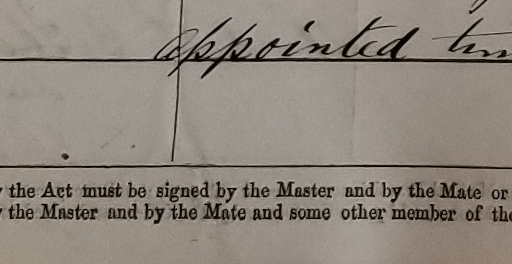 appointed
the Act must be signed by the Master and by the Mate or
the Master and by the Mate and some other member of the